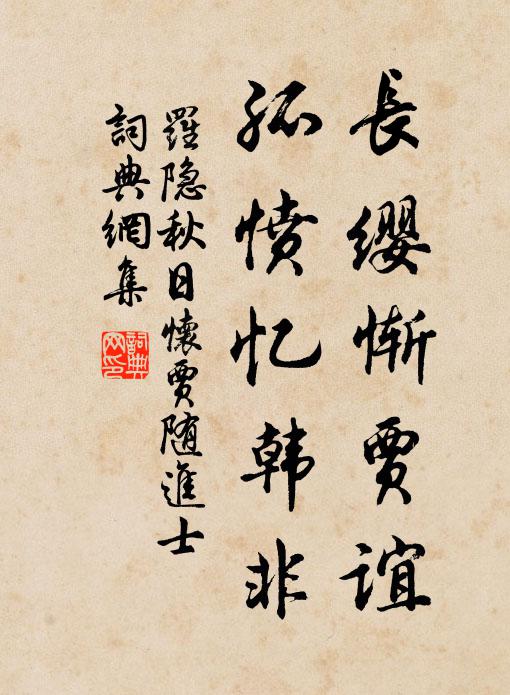 長纓慚贾谊
孤愤忆韩非
羅隐秋日懷贾随進士
詞典網集
詞典网印